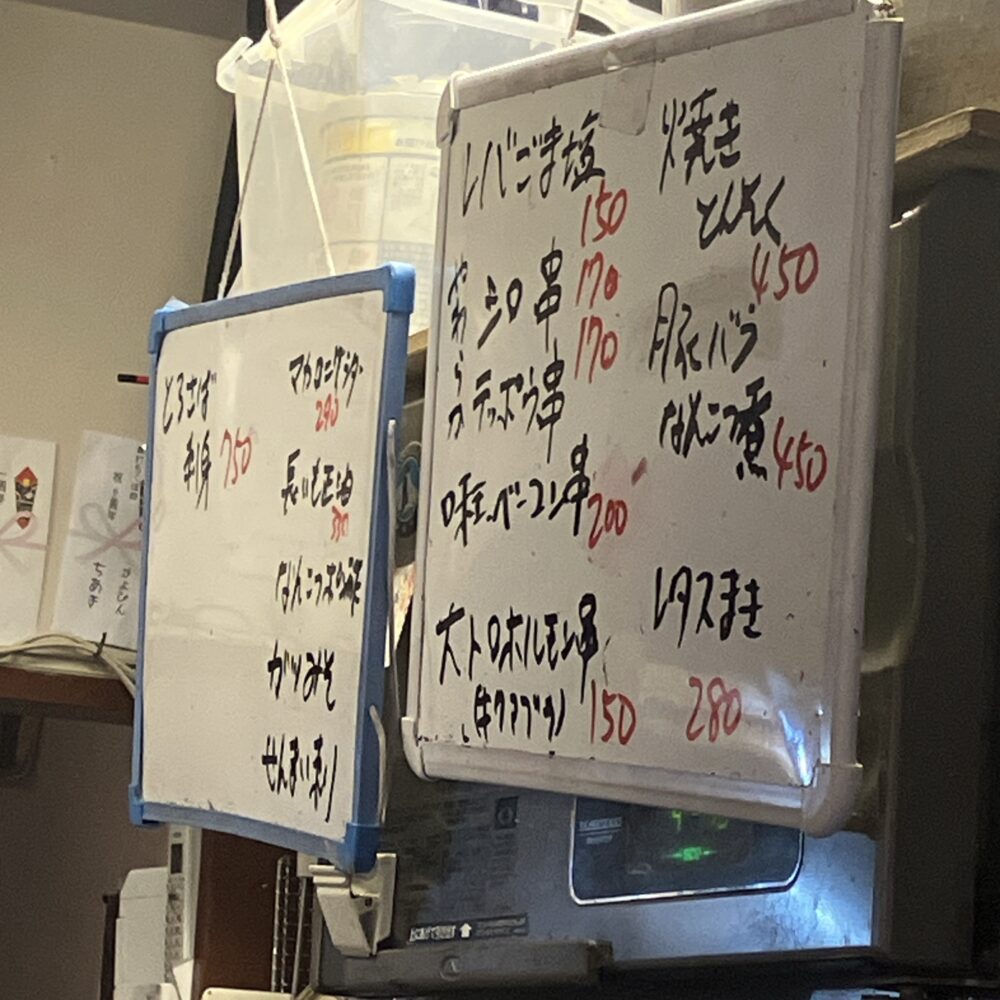 レバごま塩
150
やわらか
シロ串
170
テッポウ串
170
味玉ベーコン串
200
大トロホルモン串
150
焼き
とんそく
450
豚バラ
なんこつ煮
450
レタスまき
280
マカロニグラタン
290
長いも正油
330
なんこつポン酢
ガツみそ
せんまい刺
とろさば
刺身 750